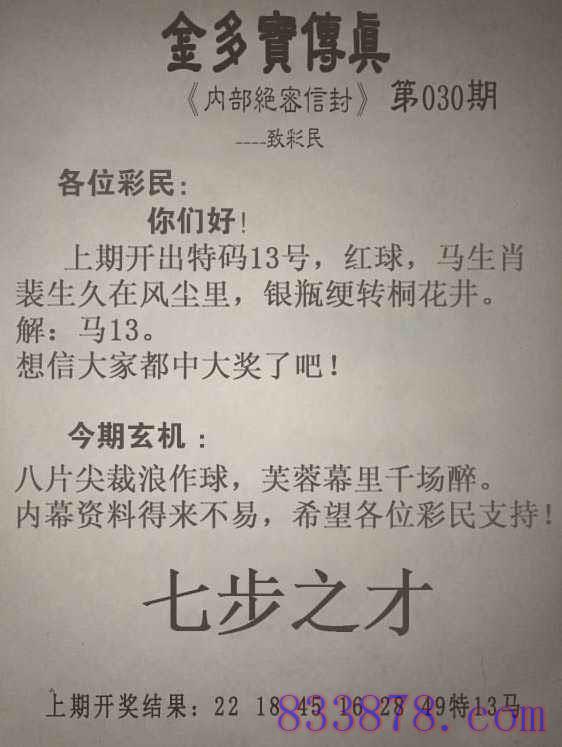 金多寳傳真
《内部絕密信封》 第030期
----致彩民
各位彩民:
你们好!
上期开出特码13号，红球，马生肖
裴生久在风尘里，银瓶绠转桐花井。
解：马13。
想信大家都中大奖了吧!
今期玄机：
八片尖裁浪作球，芙蓉幕里千场醉。
内幕资料得来不易，希望各位彩民支持!
七步之才
上期开奖结果：22 18 45 16 28 49特13马
833878.com